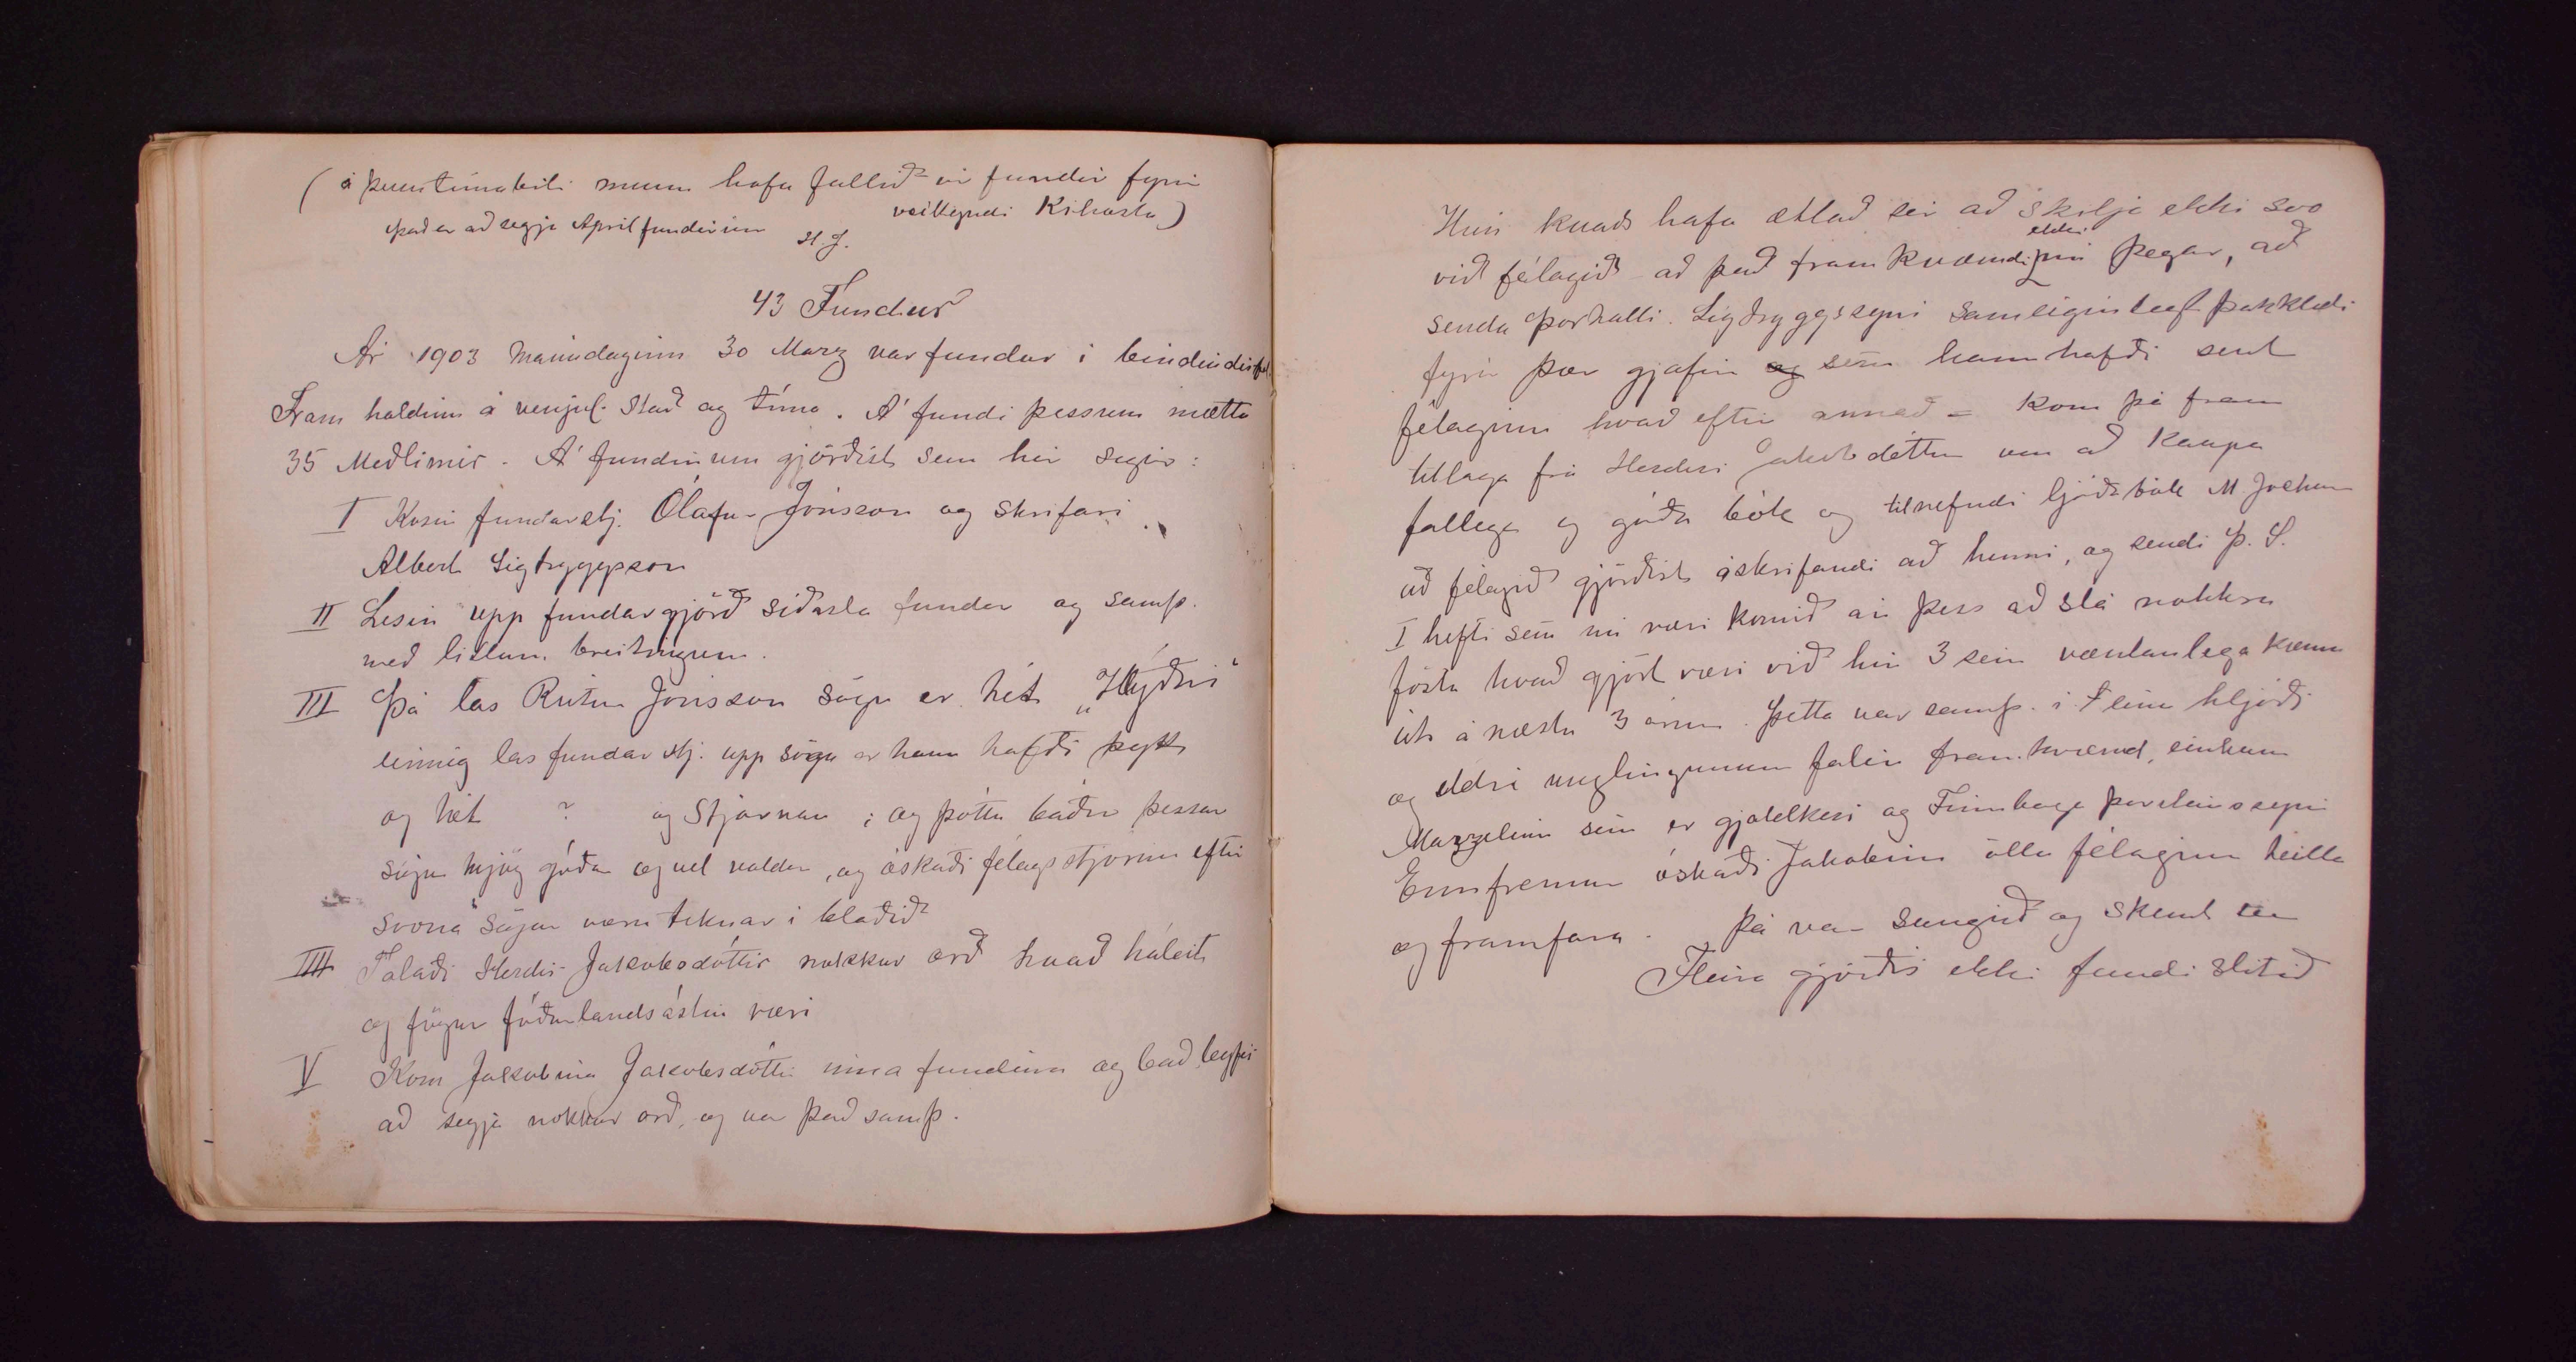 (á þessu tímabili munu hafa fallið úr fundir fyrir
veikyndi Kíhósta)
það er að segja Apríl fundurinn H. J.
43 Fundur
Ár 1903 Mánudaginn 30 Marz var fundur í bindindisfél.
Fram haldinn á venjul. stað og tíma. Á fundi þessum mætta
35 Meðlimir. Á fundinum gjörðist sem hér segir:
I Kosin fundarstj. Ólafur Jónsson og skrifari
Albert Sigtryggsson
II Lesin upp fundargjörð síðasta fundar og samþ.
með litlum breitingum.
III Þá las Rútur Jónsson sögu er hét „Hlýðni"
einnig las fundarstj. upp sögu er hann hafði þytt
og hét ? og Stjarnan ; og þóttu báðar þessar
sögur mjög góðar og vel valdar, og óskaði félagsstjórnin eftir
svona sögur væru teknar í blaðið
IIII Talaði Herdís Jakobsdóttir nokkur orð hvað háleit
og fögur föðurlandsástin væri
V Kom Jakobína Jakobsdóttir inn á fundinn og bað leyfis
að segja nokkur orð, og var það samþ.
Hún kvaðs hafa ætlað sér að skilja ekki svo
við félagið að það framkvæmdi ekki nú þegar, að
senda Þórhalli Sigtryggssyni sameiginlegt þakklæti
fyrir þær gjafir og sem hann hafði sent
félaginu hvað eftir annað - kom þá fram
tillaga frá Herdísi Jakobsdóttur um að kaupa
fallega og góða bók og tilnefndi ljóðabók M. Jochum
að félagið gjörðist áskrifandi að henni, og sendi Þ. S.
I hefti sem nú væri komið án þess að slá nokkru
föstu hvað gjört væri við hin 3 sem væntanlega kæmu
út á næstu 3 árum. Þetta var samþ. í einu hljóði
og eldri unglingunum falin framkvæmd, einkum
Marzelínu sem er gjaldkeri og Finnboga Þorsteinssyni
Ennfremur óskaði Jakobína öllu félaginu heilla
og framfara. Þá var sungið og skemt sér
Fleira gjörðis ekki fundi slitið